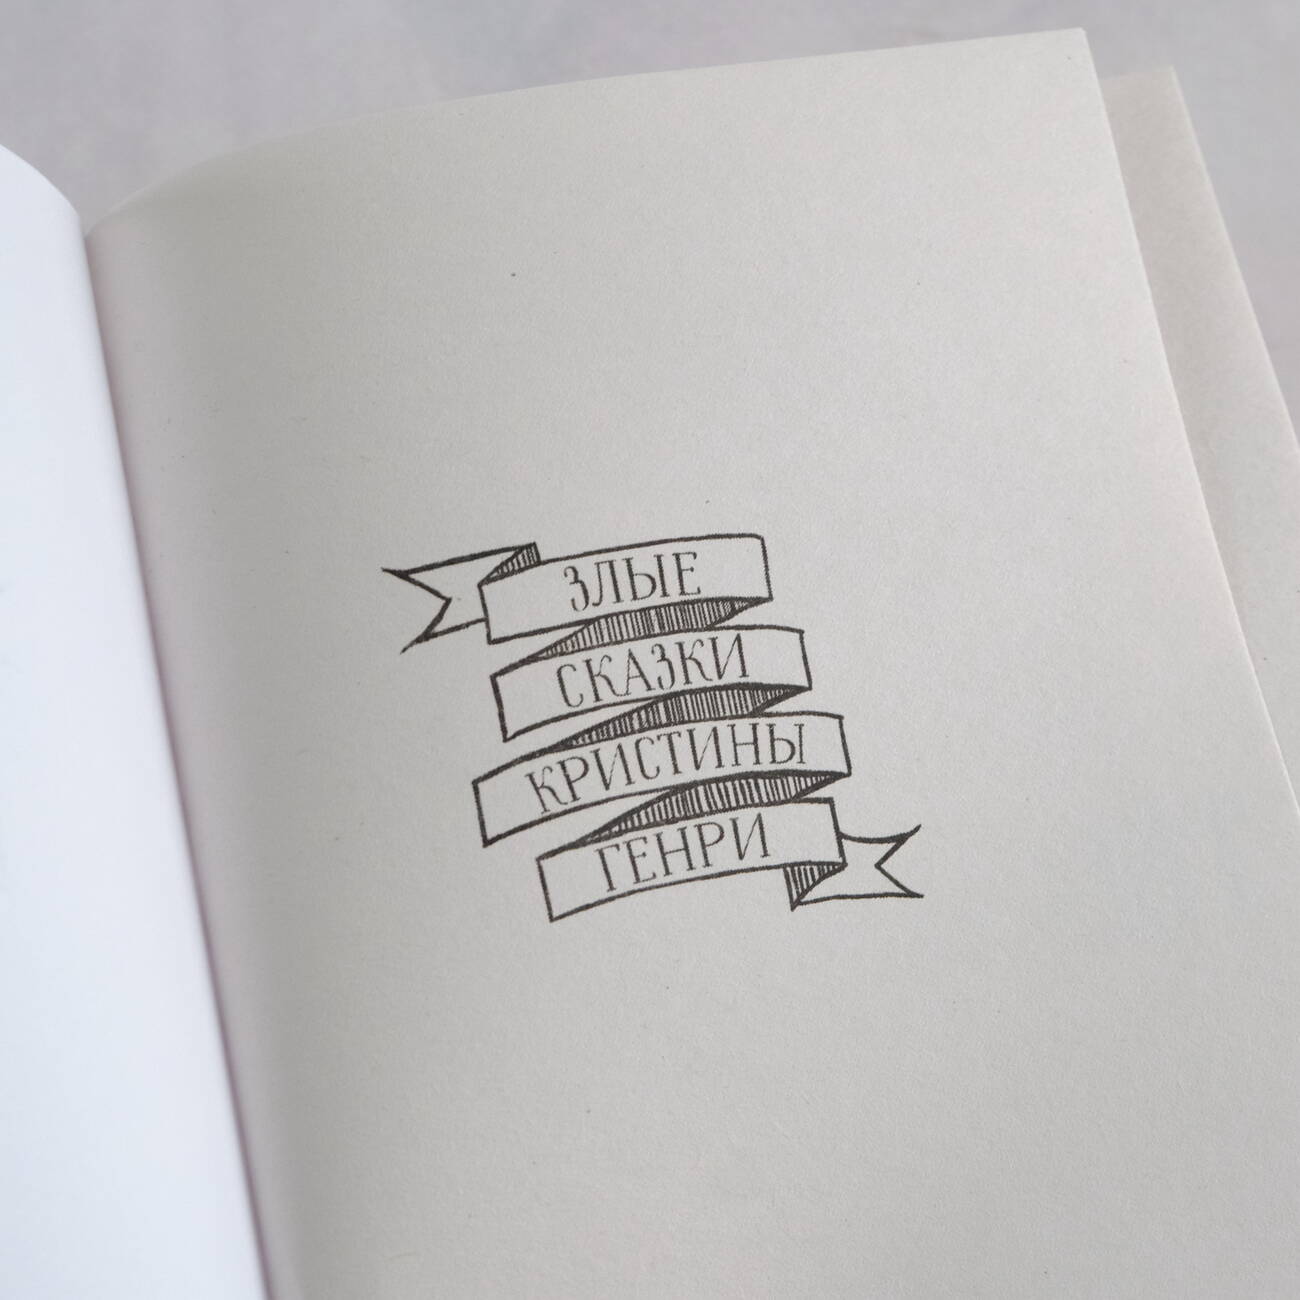 ЗЛЫЕ
СКАЗКИ
КРИСТИНЫ
ГЕНРИ